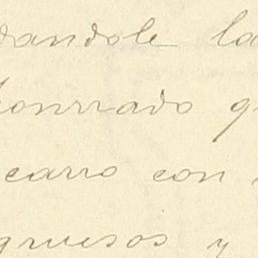 dandole la
honrrado q
carro con
gruesos y